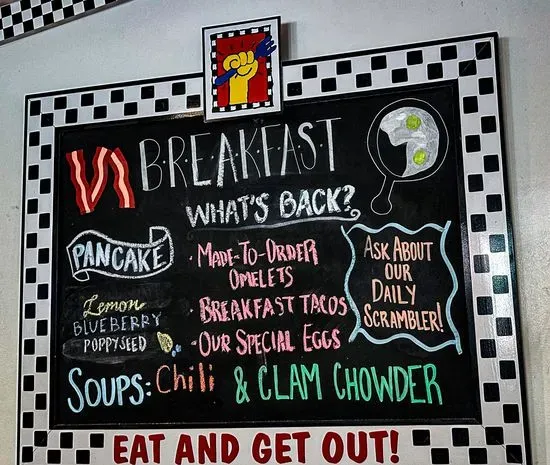 BREAKFAST
WHAT'S BACK?
PANCAKE
Lemon
BLUEBERRY
POPPYSEED
· MADE-TO-ORDER
OMELETS
· BREAKFAST TACOS
· OUR SPECIAL EGGS
ASK ABOUT
OUR
DAILY
SCRAMBLER!
SOUPS: Chili & CLAM CHOWDER
EAT AND GET OUT!